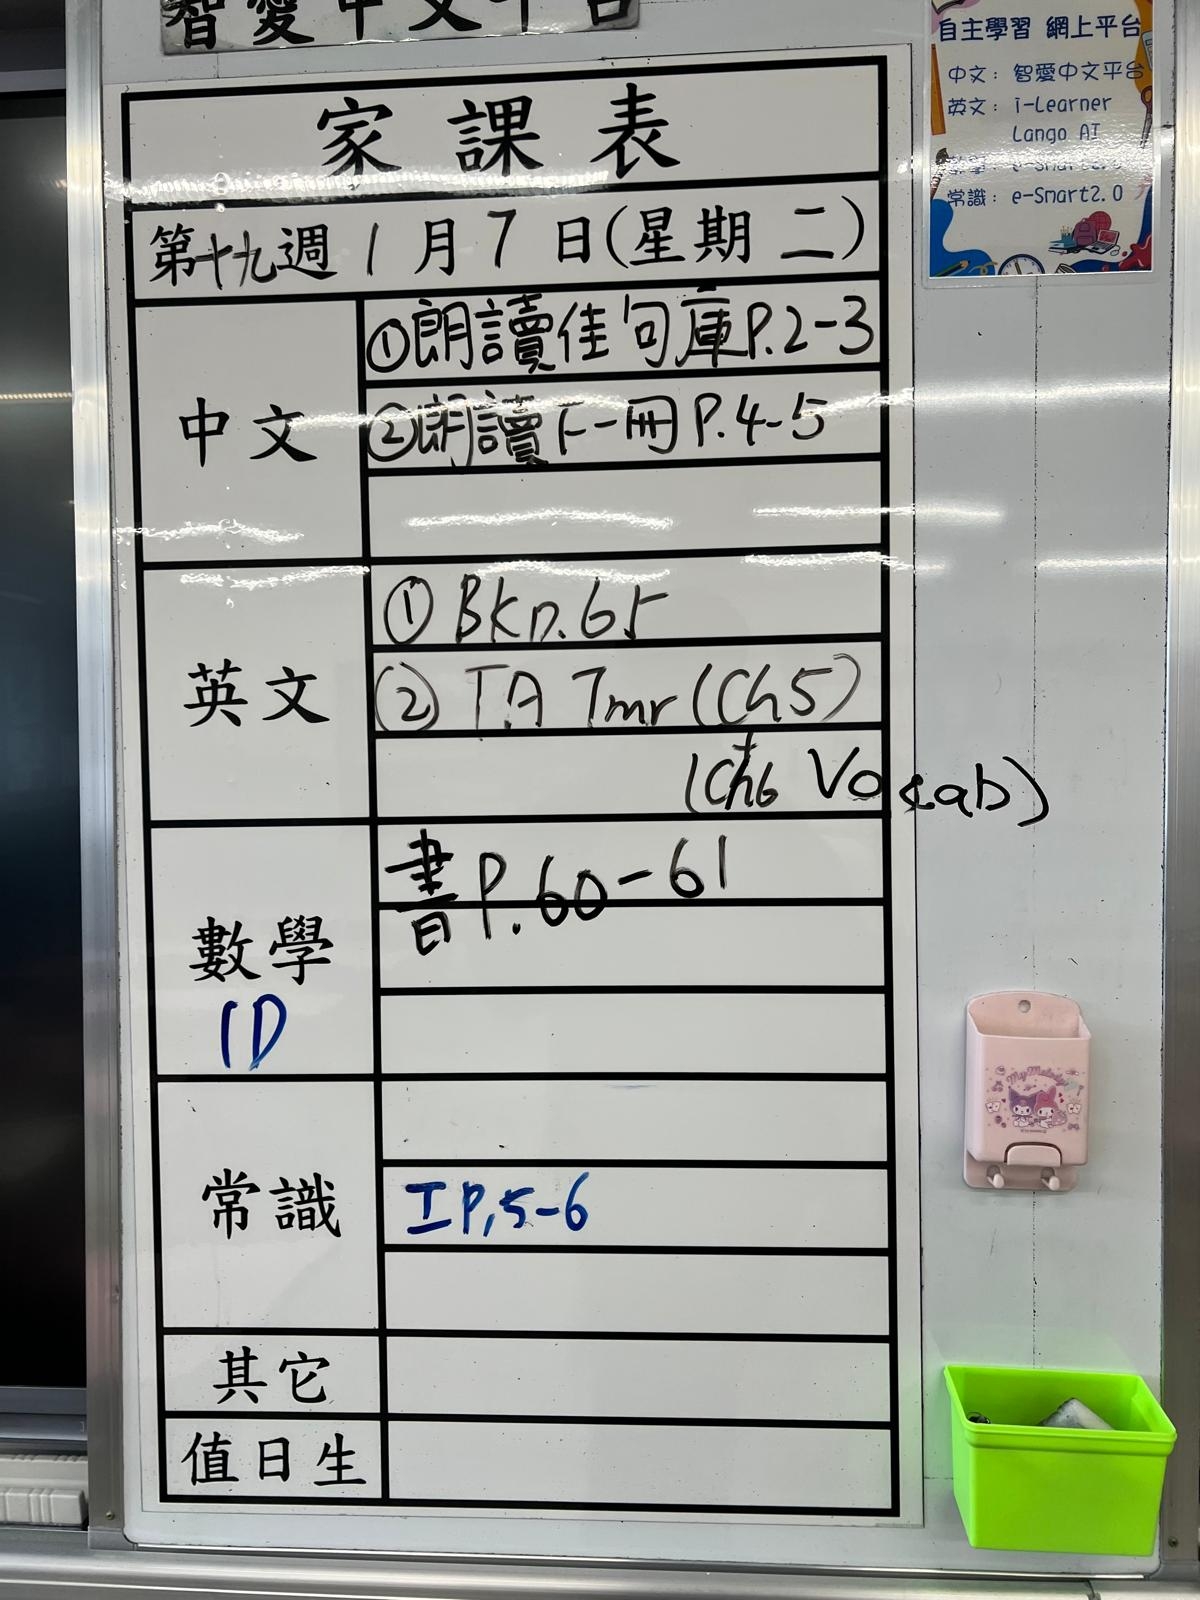 智愛中文平台
自主學習 網上平台
中文：智愛中文平台
英文：i-Learner
Lango AI
數學：e-Smart2.0
常識：e-Smart2.0
家課表
第十九週 1月7日(星期二)
中文
①朗讀佳句庫P.2-3
②朗讀下一冊P.4-5
英文
① Bk p.65
② TA Tmr (Ch5)
(Ch6 Vocab)
數學
1D
書P.60-61
常識
工P.5-6
其它
值日生
My Melody